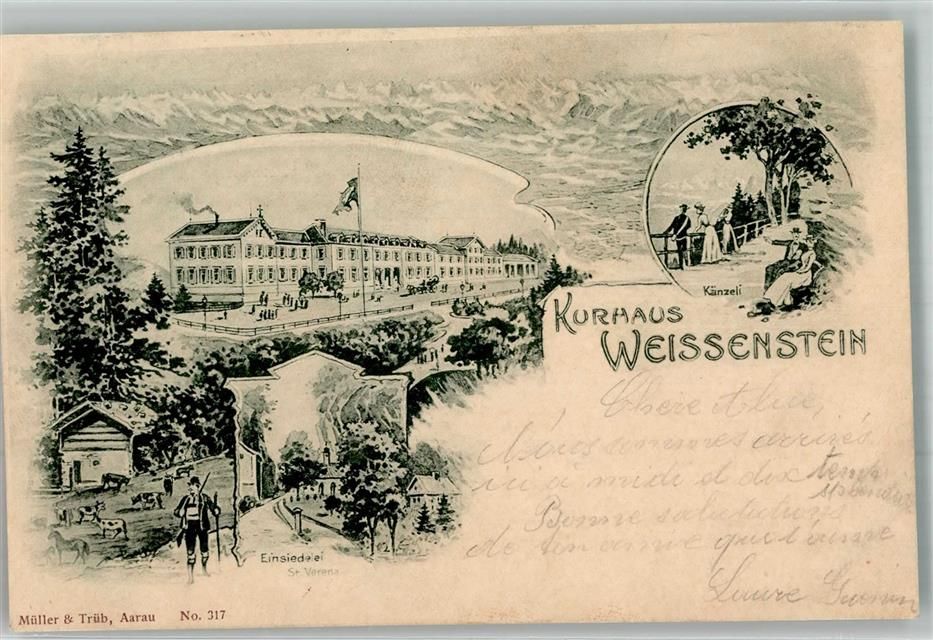 Känzeli
KURHAUS
WEISSENSTEIN
Chere
Nous sommes arrivés
ici à midi d dix temps
splendide
Bonne salutations
de ton amie qui t'aime
Laure
Einsiedelei
St. Verena
Müller & Trüb, Aarau No. 317